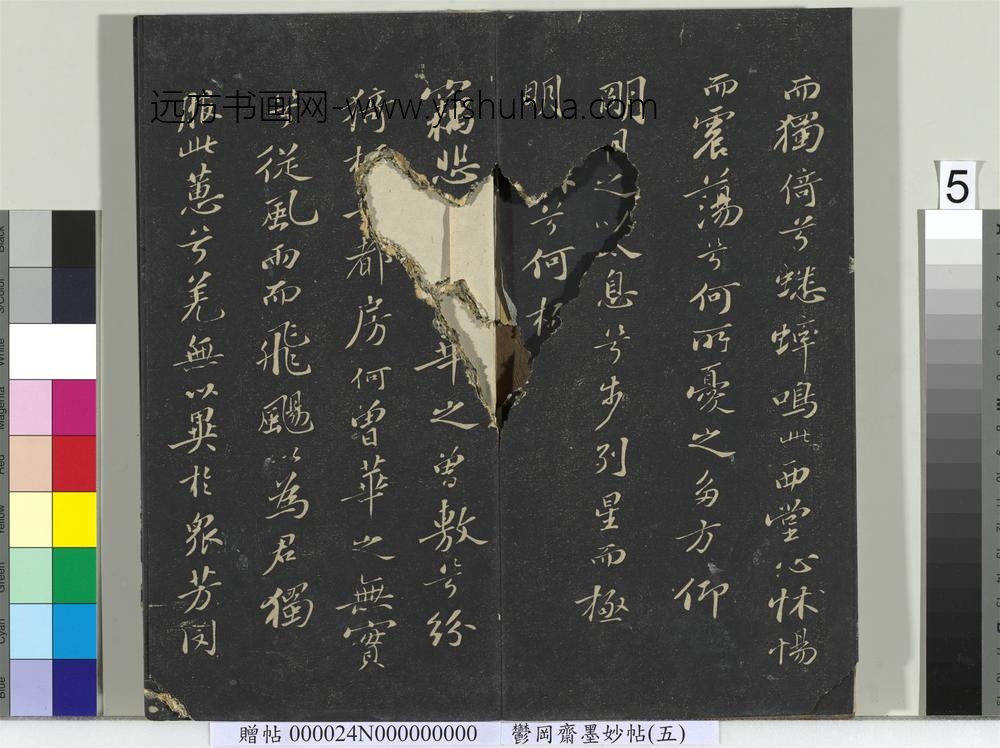 而獨倚兮蟋蟀鳴此西堂心怵惕
而震蕩兮何所憂之多方仰
明月之 太息兮步列星而極
明 兮何
竊悲 華之曾敷兮紛
旖 都房何曾華之無實
從風雨而飛颺以為君獨
服此蕙兮羌無以異於衆芳閔
远方书画网-www.yfshuhua.com
5
贈帖 000024N000000000 鬱岡齋墨妙帖(五)
Black
3/Color
White
Magenta
Red
Yellow
Green
Cyan
Blue